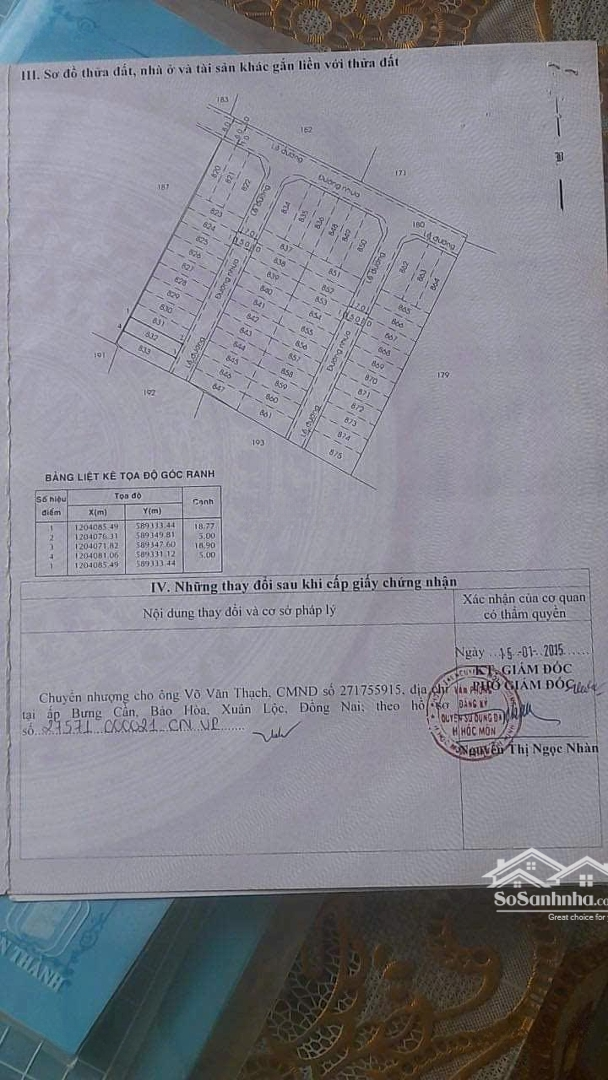 III. Sơ đồ thửa đất, nhà ở và tài sản khác gắn liền với thửa đất
183
162
171
187
180
Lề đường
Đường nhựa
Lề đường
820
821
822
Lề đường
834
835
836
848
849
850
Lề đường
862
863
864
823
824
825
826
827
828
829
830
831
832
833
Đường nhựa
Lề đường
837
838
839
840
841
842
843
844
845
846
847
851
852
853
854
855
856
857
858
859
860
861
Đường nhựa
Lề đường
865
866
867
868
869
870
871
872
873
874
875
179
191
192
193
BẢNG LIỆT KÊ TỌA ĐỘ GÓC RANH
Số hiệu điểm Tọa độ Cạnh
X(m) Y(m)
1 1204085.49 589333.44 18.77
2 1204076.31 589349.81 5.00
3 1204071.82 589347.60 18.90
4 1204081.06 589331.12 5.00
1 1204085.49 589333.44
IV. Những thay đổi sau khi cấp giấy chứng nhận
Nội dung thay đổi và cơ sở pháp lý
Xác nhận của cơ quan
có thẩm quyền
Ngày 15-01-2015
KT. GIÁM ĐỐC
PHÓ GIÁM ĐỐC
Chuyển nhượng cho ông Võ Văn Thạch, CMND số 271755915, địa chỉ
tại ấp Bưng Cần, Bảo Hòa, Xuân Lộc, Đồng Nai; theo hồ sơ
số 27571 000021 CN.VP
VĂN PHÒNG
ĐĂNG KÝ
QUYỀN SỬ DỤNG ĐẤT
H. HÓC MÔN
Nguyễn Thị Ngọc Nhàn
SoSanhnha.co
Great choice for
THANH